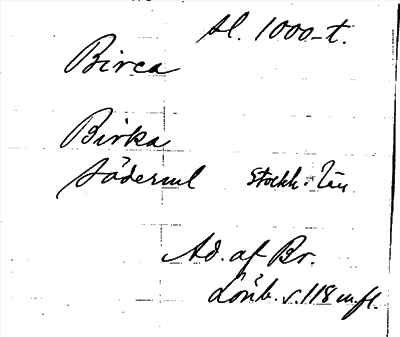 sl. 1000-t.
Birca
Birka
Söderml Stockh: län
Ad. af Br.
Lönb. s. 118 m.fl.